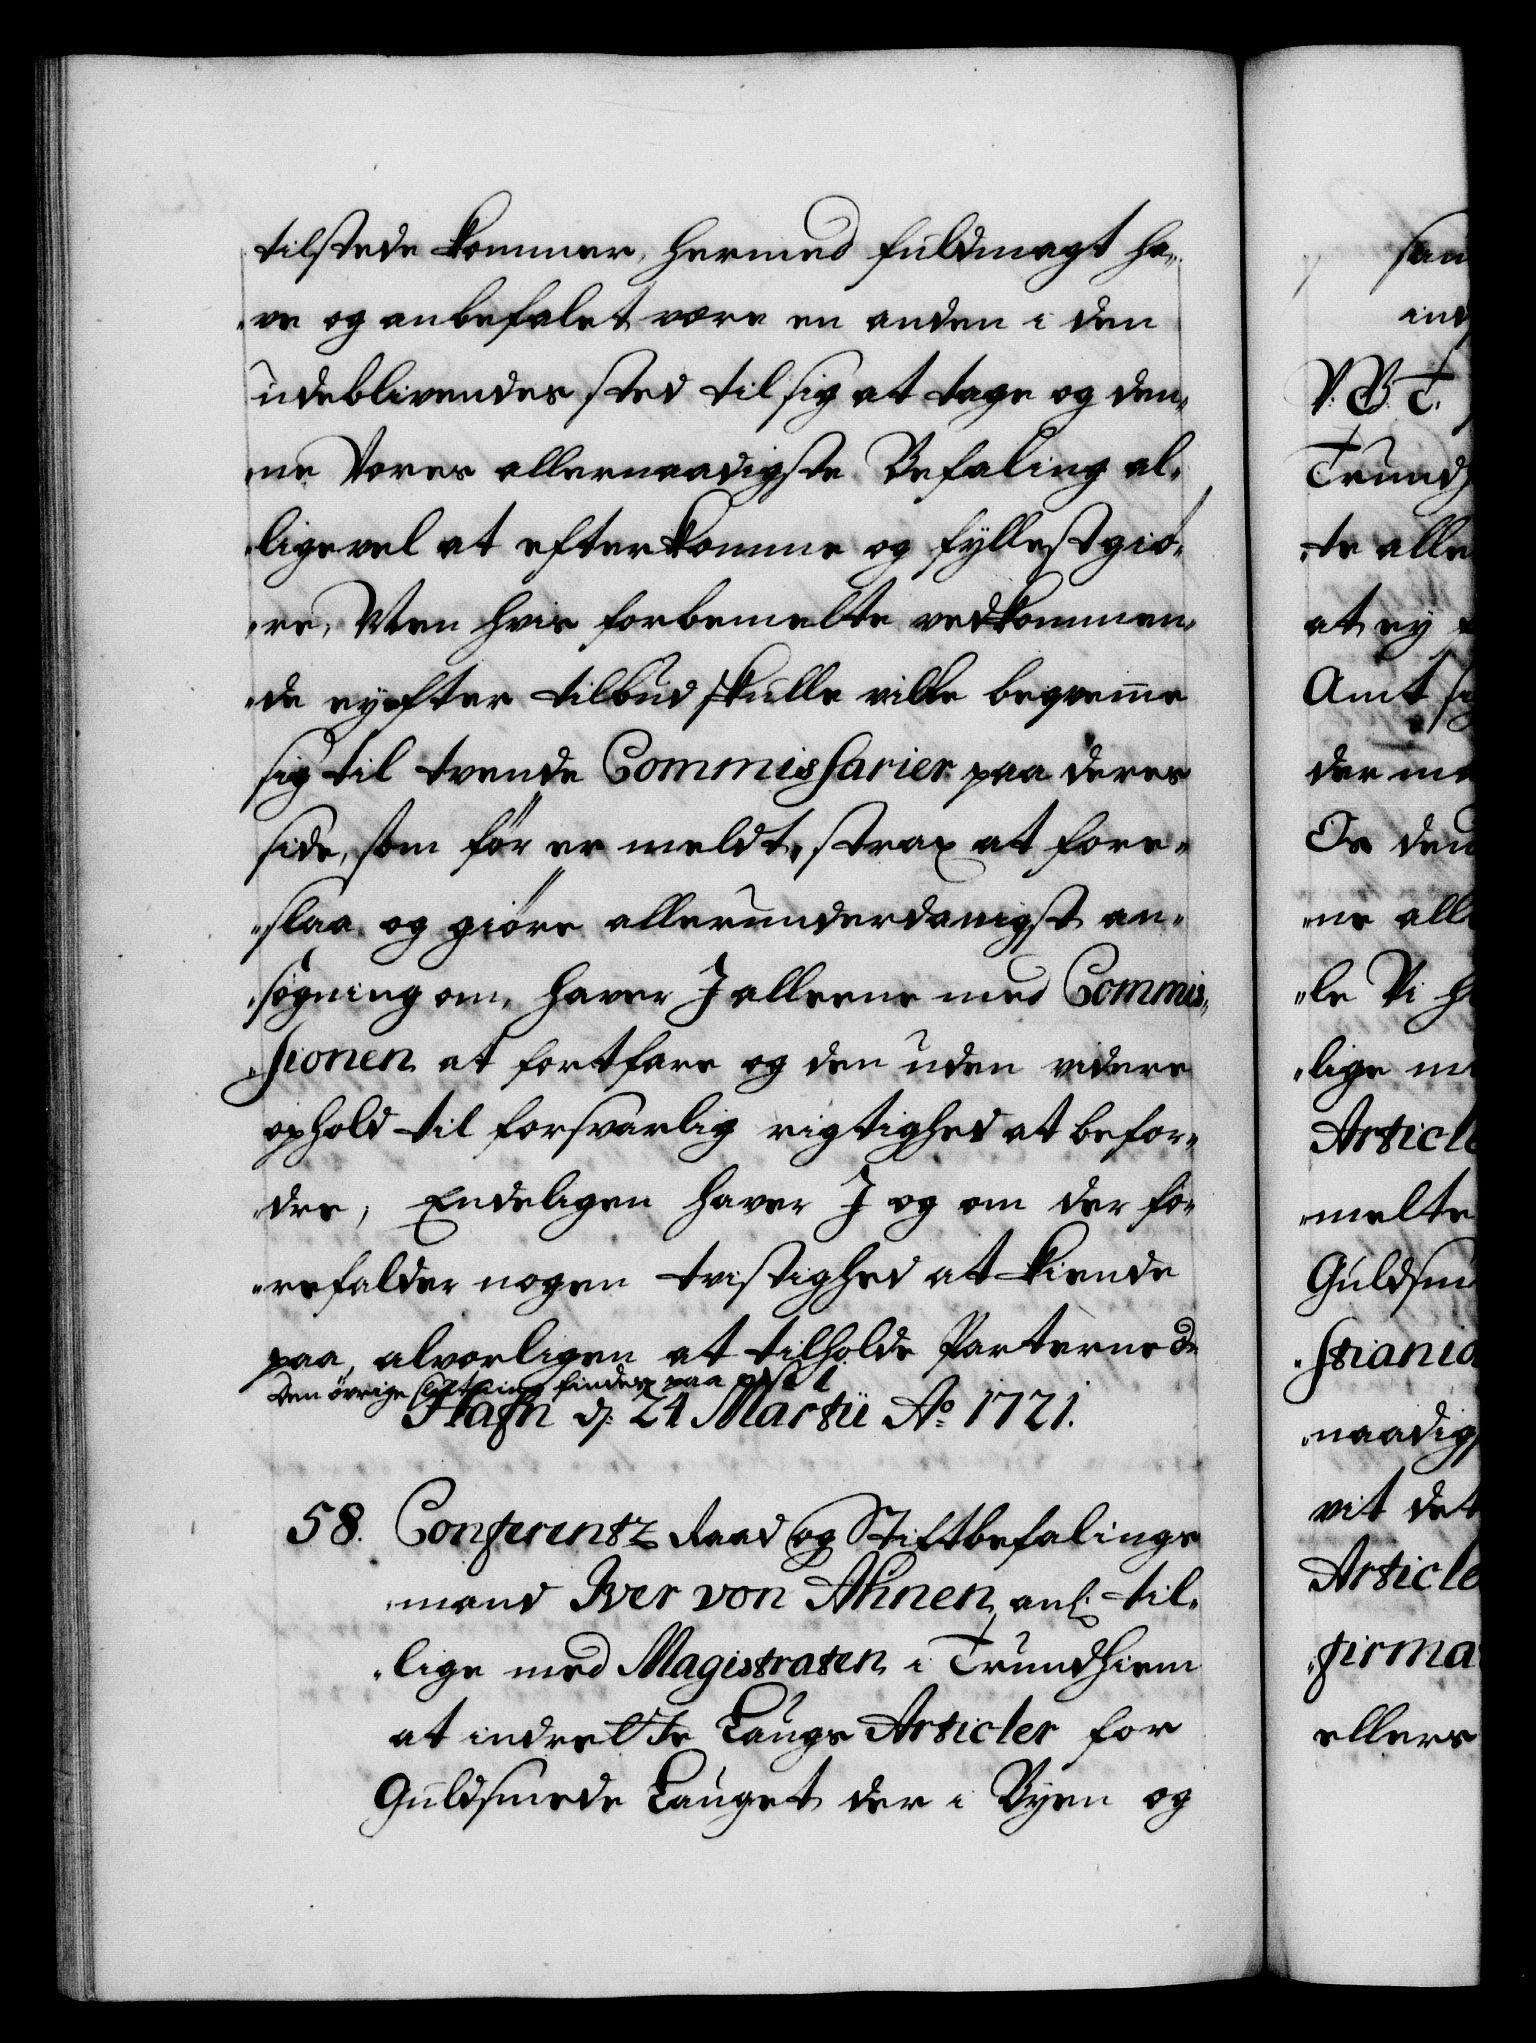 tilstede kommer, hermed fuldmagt ha„
„ve og anbefalet være en anden i den
udeblivendes sted til sig at tage og den„
„ne Vores allernaadigste Befaling al„
„ligevel at efterkomme og fyllestgiø„
„re, Men hvis forbemelte vedkommen„
„de ey efter tilbud skulle ville beqveme
sig til tvende Commissarier paa deres
side, som før er meldt, strax at fore„
„slaa og giøre allerunderdanigst an„
„søgning om, haver I alleene med Commis„
„sionen at fortfare og den uden videre
ophold til forsvarlig rigtighed at befor„
„dre, Endeligen haver I og om der fo„
„refalder nogen tvistighed at kiende
paa, alvorligen at tilholde Parterne de
Den øvrige slutning findes paa
Hafn d. 24 Martii Ao 1721.
58. Conferentz Raad og Stiftbefalings
„mand Iver von Ahnen, anl. til„
„lige med Magistraten i Trundhiem
at indrette Laugs Articler for
Guldsmede Lauget der i Byen og
san
ind
V. G. T.
Trund
„te alle
at ey
Amt si
der me
Os den
„ne alle
„le Vi h
„lige m
Article
„melte
Guldsm
„stiania
„naadig
vit det
Article
„firma
ellers